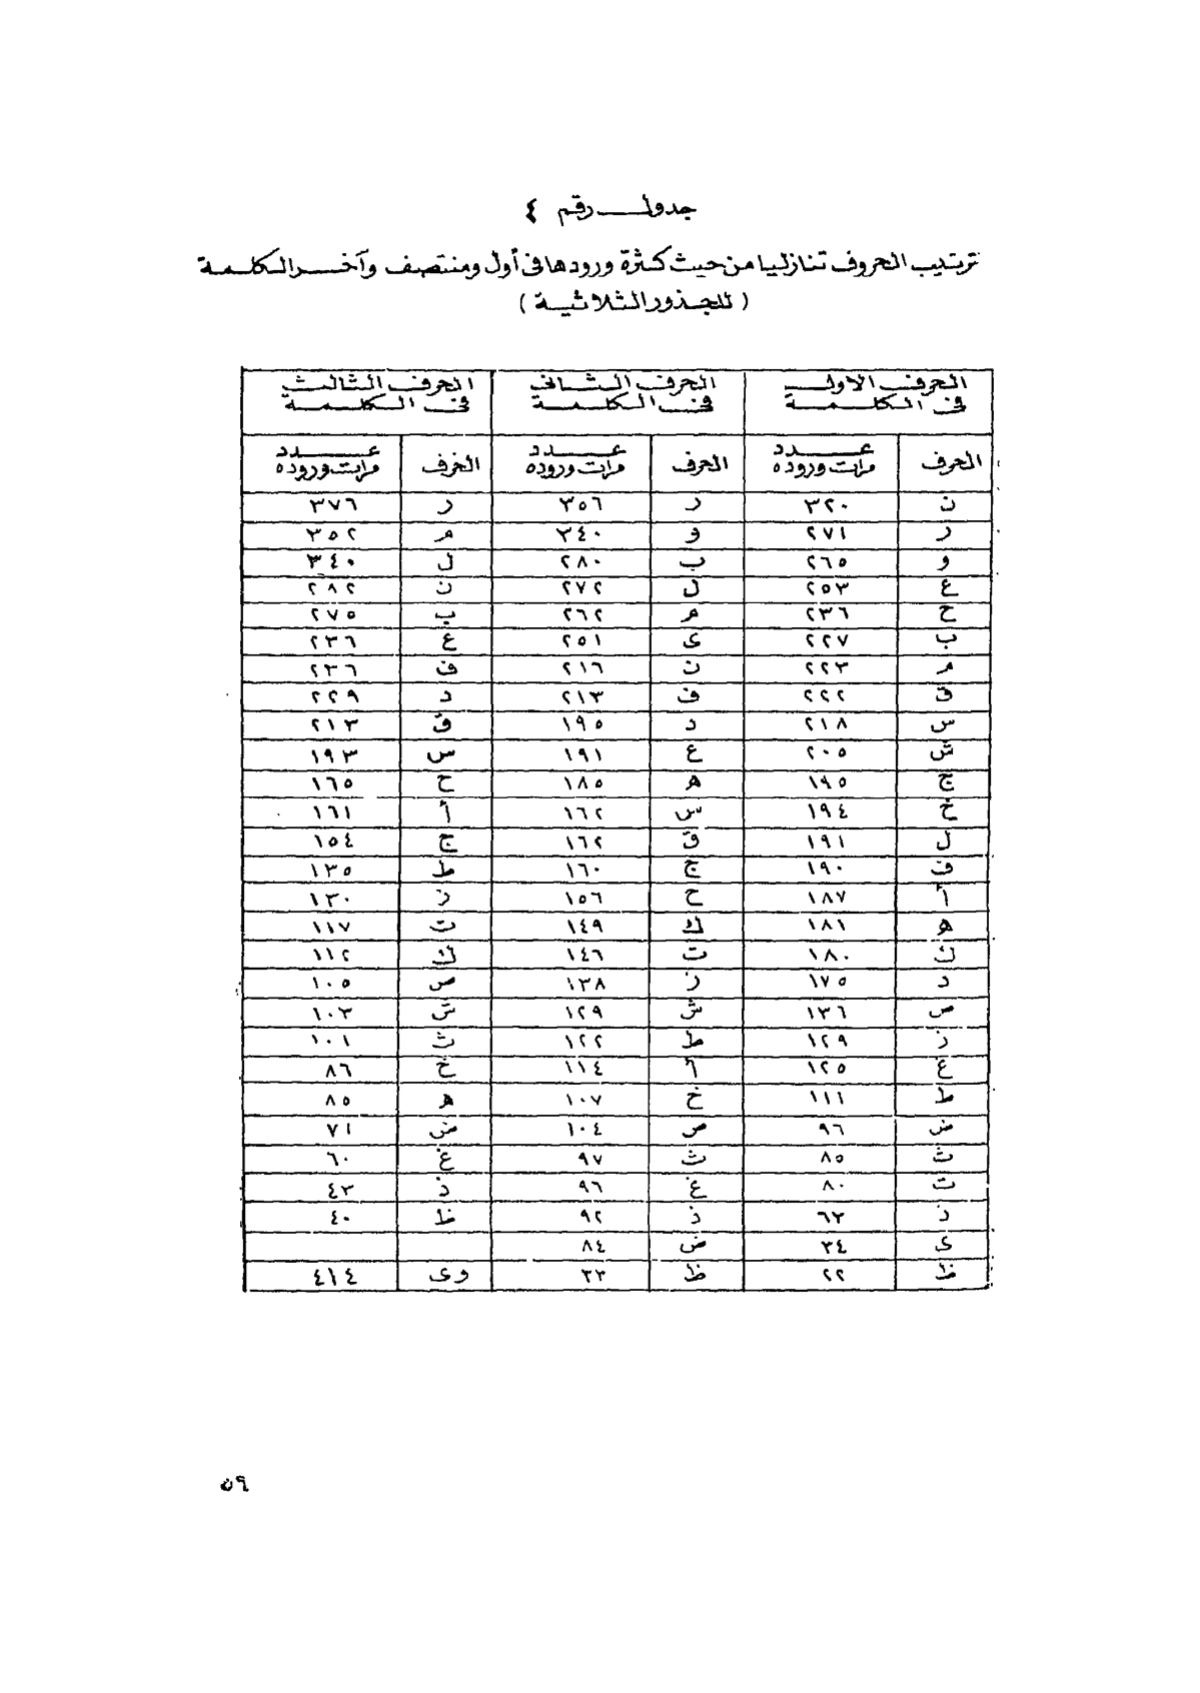 جدول رقم ٤
ترتيب الحروف تنازليا من حيث كثرة ورودها فى أول ومنتصف وآخر الكلمة
( للجذور الثلاثية )
الحرف الاول فى الكلمة | الحرف الثانى فى الكلمة | الحرف الثالث فى الكلمة
الحرف | عدد مرات وروده | الحرف | عدد مرات وروده | الحرف | عدد مرات وروده
ن | ٣٢٠ | ر | ٣٥٦ | ر | ٣٧٦
ر | ٢٧١ | و | ٣٤٠ | م | ٣٥٢
و | ٢٦٥ | ب | ٢٨٠ | ل | ٣٤٠
ع | ٢٥٣ | ل | ٢٧٢ | ن | ٢٨٢
ح | ٢٣٦ | م | ٢٦٢ | ب | ٢٧٥
ب | ٢٢٧ | ى | ٢٥١ | ع | ٢٣٦
م | ٢٢٣ | ن | ٢١٦ | ف | ٢٣٦
ق | ٢٢٢ | ف | ٢١٣ | د | ٢٢٩
س | ٢١٨ | د | ١٩٥ | ق | ٢١٣
ش | ٢٠٥ | ع | ١٩١ | س | ١٩٣
ج | ١٩٥ | ه | ١٨٥ | ح | ١٦٥
خ | ١٩٤ | س | ١٦٢ | أ | ١٦١
ل | ١٩١ | ق | ١٦٢ | ج | ١٥٤
ف | ١٩٠ | ج | ١٦٠ | ط | ١٣٥
أ | ١٨٧ | ح | ١٥٦ | ز | ١٣٠
ه | ١٨١ | ك | ١٤٩ | ت | ١١٧
ك | ١٨٠ | ت | ١٤٦ | ك | ١١٢
د | ١٧٥ | ز | ١٣٨ | ص | ١٠٥
ص | ١٣٦ | ش | ١٢٩ | ش | ١٠٣
ز | ١٢٩ | ط | ١٢٢ | ث | ١٠١
غ | ١٢٥ | أ | ١١٤ | خ | ٨٦
ط | ١١١ | خ | ١٠٧ | ه | ٨٥
ض | ٩٦ | ص | ١٠٤ | ض | ٧١
ث | ٨٥ | ث | ٩٧ | غ | ٦٠
ت | ٨٠ | غ | ٩٦ | ذ | ٤٣
ذ | ٦٣ | ذ | ٩٢ | ظ | ٤٠
ى | ٣٤ | ض | ٨٤
ظ | ٢٢ | ظ | ٣٣ | وى | ٤١٤
٥٩